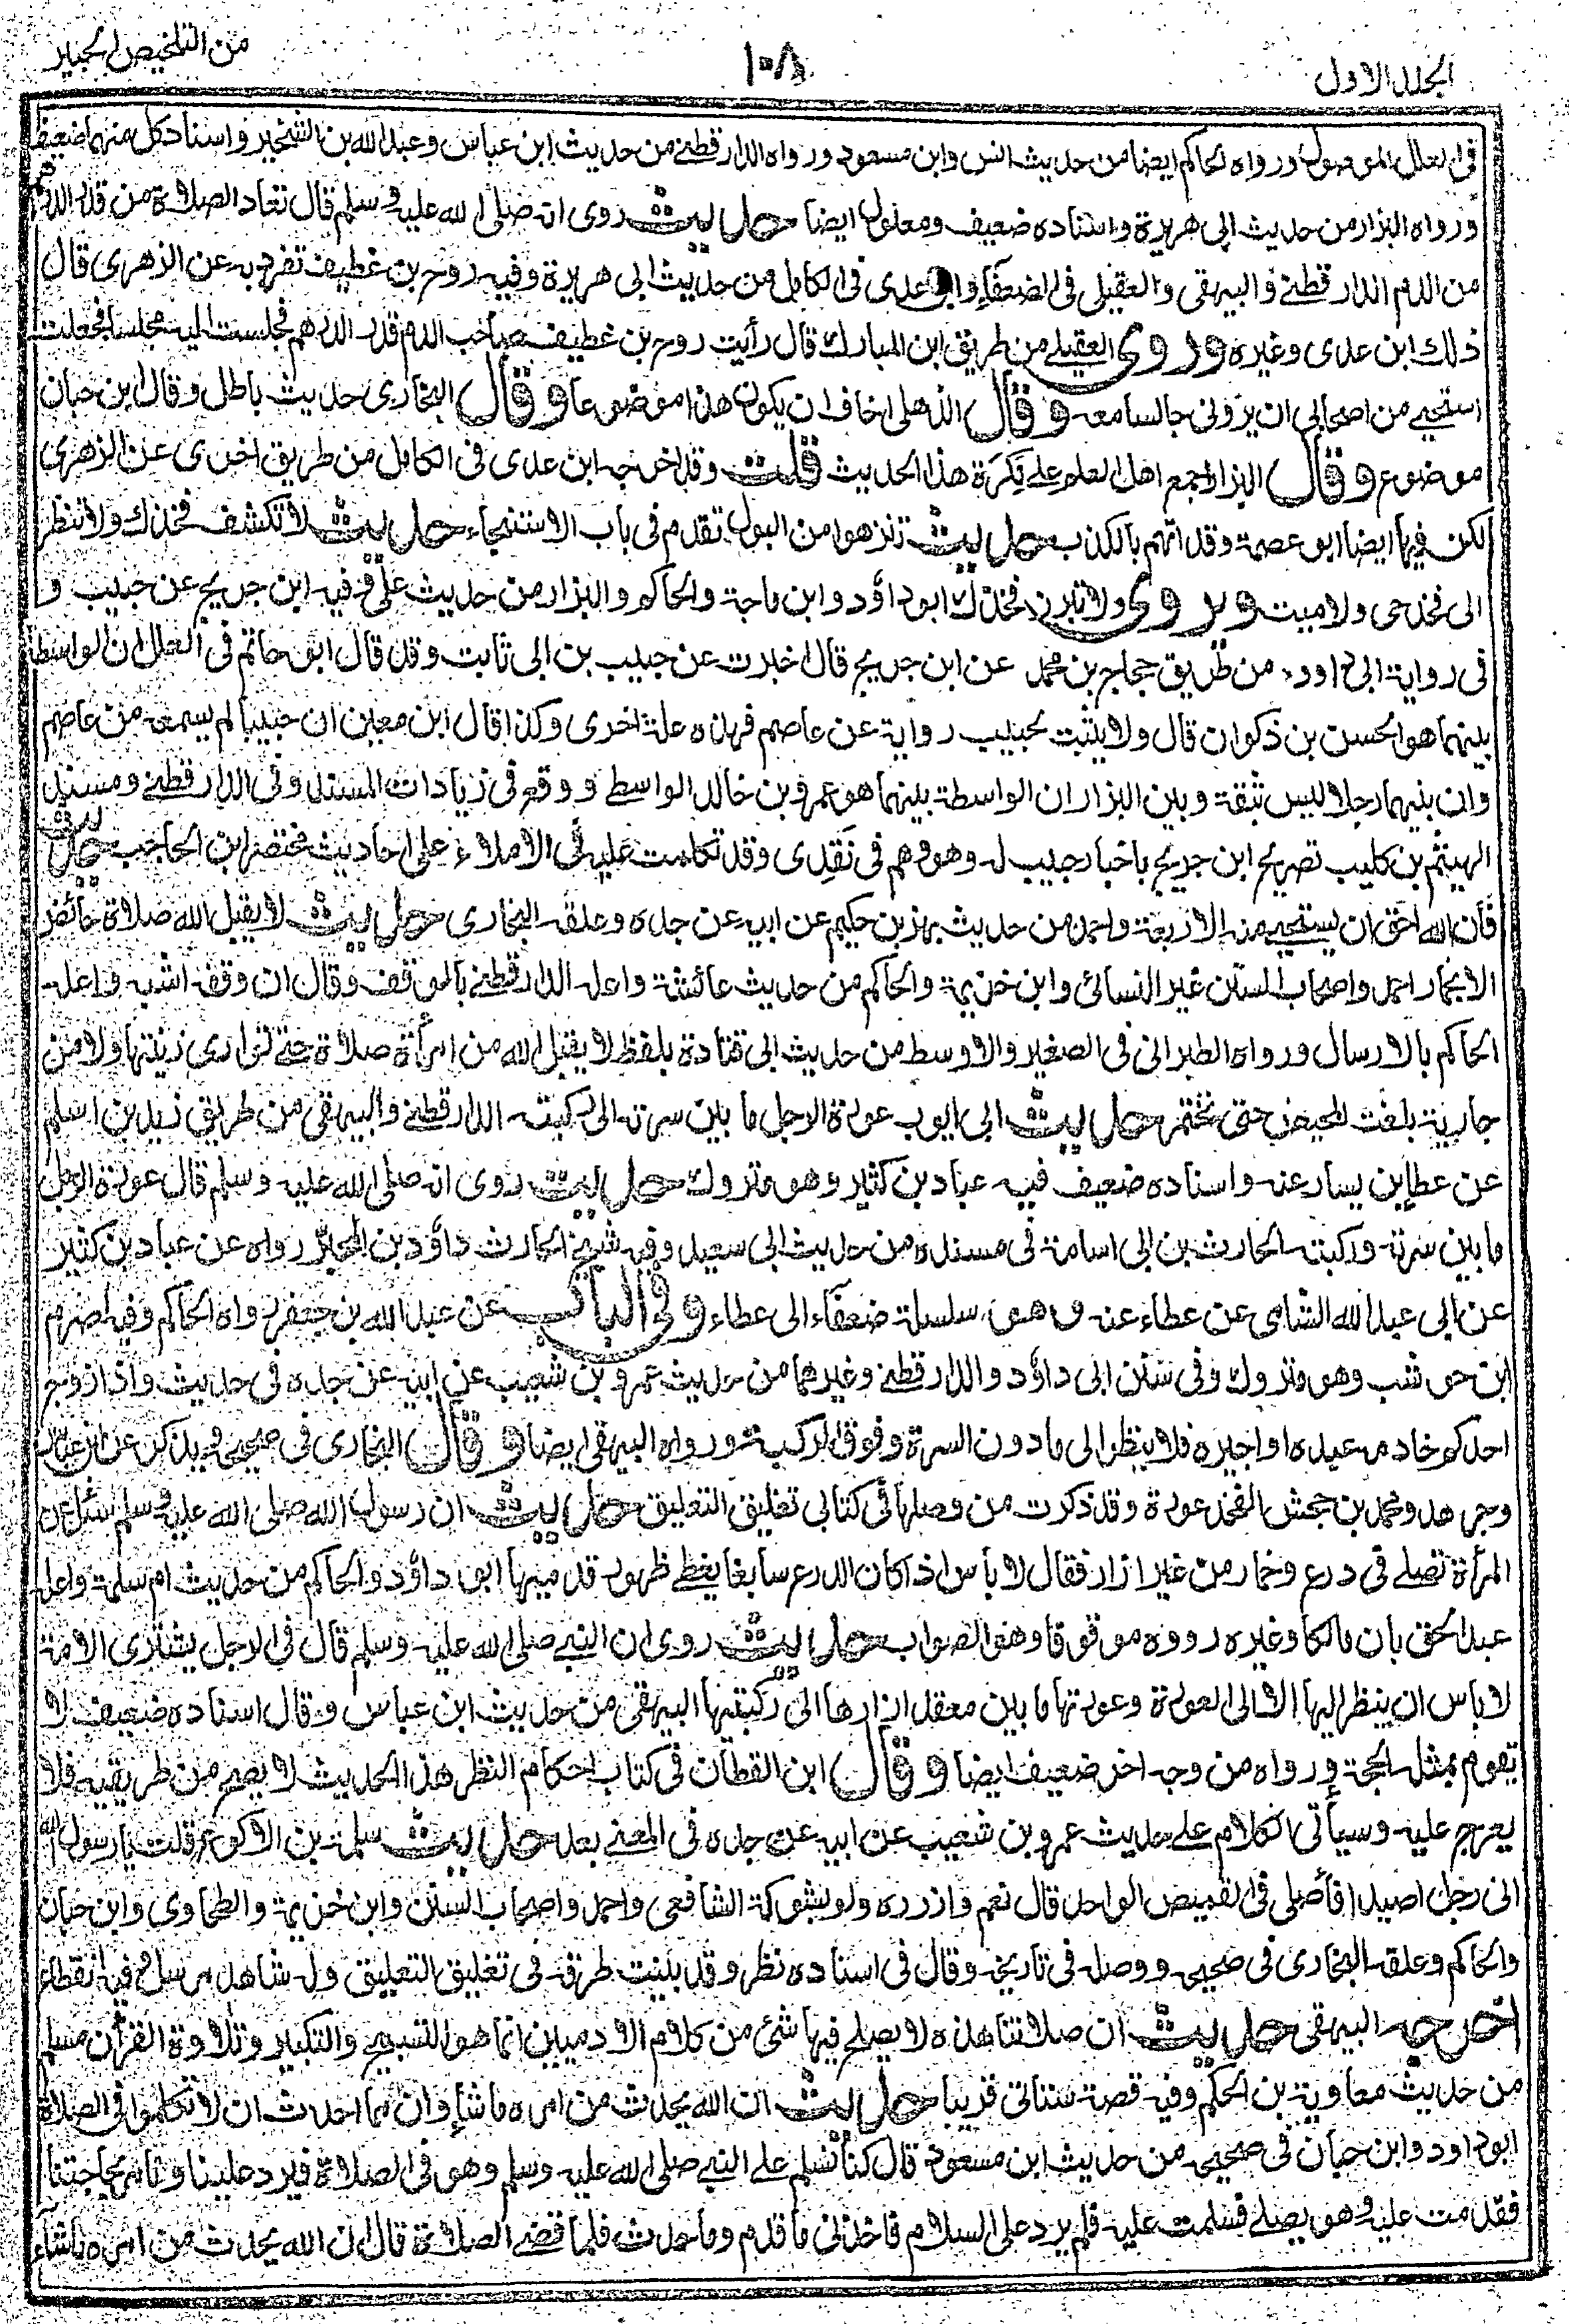 الجلد الاول
١٠٨
من التلخيص الحبير
فى العلل الموصول ورواه الحاكم ايضا من حديث انس وابن مسعود ورواه الدارقطنے من حديث ابن عباس وعبد الله بن الشخير واسناد كل منهما ضعيف
ورواه البزار من حديث ابى هريرة واسناده ضعيف ومعلول ايضا حديث روى انه صلى الله عليه وسلم قال تعاد الصلاة من قدر الدرهم
من الدم الدارقطنے والبيهقى والعقيلى فى الضعفاء وابن عدى فى الكامل من حديث ابى هريرة وفيه روح بن غطيف تفرد به عن الزهرى قال
ذلك ابن عدى وغيره وروى العقيلے من طريق ابن المبارك قال رأيت روح بن غطيف صاحب الدم قدر الدرهم فجلست اليه مجلسا فجعلت
استحيے من اصحابى ان يرونى جالسا معه وقال الذهلى اخاف ان يكون هذا موضوعا وقال البخارى حديث باطل وقال ابن حبان
موضوع وقال البزار اجمع اهل العلم على نكرة هذا الحديث قلت وقد اخرجه ابن عدى فى الكامل من طريق اخرى عن الزهرى
لكن فيها ايضا ابو عصمة وقد اتهم بالكذب حديث تنزهوا من البول تقدم فى باب الاستنجاء حديث لا تكشف فخذك ولا تنظر
الى فخذ حى ولا ميت ويروى ولا تبرز فخذك ابو داؤد وابن ماجة والحاكم والبزار من حديث على وفيه ابن جريج عن حبيب و
فى رواية ابى داود من طريق حجاج بن محمد عن ابن جريج قال اخبرت عن حبيب بن ابى ثابت وقد قال ابو حاتم فى العلل ان الواسطة
بينهما هو الحسن بن ذكوان قال ولا يثبت لحبيب رواية عن عاصم فهذه علة اخرى وكذا قال ابن معين ان حبيبا لم يسمعه من عاصم
وان بينهما رجلا ليس بثقة وبين البزار ان الواسطة بينهما هو عمرو بن خالد الواسطے ووقع فى زيادات المسند وفى الدارقطنے ومسند
الهيثم بن كليب تصريح ابن جريج باخبار حبيب له وهو وهم فى نقدى وقد تكلمت عليه فى الاملاء على احاديث مختصر ابن الحاجب حديث
فان الله احق ان يستحيى منه الاربعة واحمد من حديث بهز بن حكيم عن ابيه عن جده وعلقه البخارى حديث لا يقبل الله صلاة حائض
الا بخمار احمد واصحاب السنن غير النسائى وابن خزيمة والحاكم من حديث عائشة واعله الدارقطنے بالوقف وقال ان وقفه اشبه واعله
الحاكم بالارسال ورواه الطبرانى فى الصغير والاوسط من حديث ابى قتادة بلفظ لا يقبل الله من امرأة صلاة حتے توارى زينتها ولا من
جارية بلغت المحيض حتى تختمر حديث ابى ايوب عورة الرجل ما بين سرته الى ركبته الدارقطنے والبيهقى من طريق زيد بن اسلم
عن عطاء بن يسار عنه واسناده ضعيف فيه عباد بن كثير وهو متروك حديث روى انه صلى الله عليه وسلم قال عورة الرجل
ما بين سرته وركبته الحارث بن ابى اسامة فى مسنده من حديث ابى سعيد وفيه شيخ الحارث داؤد بن المحبر رواه عن عباد بن كثير
عن ابى عبد الله الشامى عن عطاء عنه وهو سلسلة ضعفاء الى عطاء وفى الباب عن عبد الله بن جعفر رواه الحاكم وفيه اصرم
ابن حوشب وهو متروك وفى سنن ابى داؤد والدارقطنے وغيرهما من حديث عمرو بن شعيب عن ابيه عن جده فى حديث واذا زوج
احدكم خادمه عبده او اجيره فلا ينظر الى ما دون السرة وفوق الركبة ورواه البيهقى ايضا وقال البخارى فى صحيحه ويذكر عن ابن عباس
وجرهد ومحمد بن جحش الفخذ عورة وقد ذكرت من وصلها فى كتابى تغليق التعليق حديث ان رسول الله صلى الله عليه وسلم سئل عن
المرأة تصلے فى درع وخمار من غير ازار فقال لا بأس اذا كان الدرع سابغا يغطے ظهور قدميها ابو داؤد والحاكم من حديث ام سلمة واعله
عبد الحق بان مالكا وغيره رووه موقوفا وهو الصواب حديث روى ان النبے صلى الله عليه وسلم قال فى الرجل يشترى الامة
لا باس ان ينظر اليها الا الى العورة وعورتها ما بين معقد ازارها الى ركبتيها البيهقى من حديث ابن عباس وقال اسناده ضعيف لا
تقوم بمثله الحجة ورواه من وجه اخر ضعيف ايضا وقال ابن القطان فى كتاب احكام النظر هذا الحديث لا يصح من طريقيه فلا
يعرج عليه وسيأتى الكلام على حديث عمرو بن شعيب عن ابيه عن جده فى المعنے بعد حديث سلمة بن الاكوع قلت يا رسول الله
انى رجل اصيد افأصلى فى القميص الواحد قال نعم وازرره ولو بشوكة الشافعى واحمد واصحاب السنن وابن خزيمة والطحاوى وابن حبان
والحاكم وعلقه البخارى فى صحيحه ووصله فى تاريخه وقال فى اسناده نظر وقد بينت طرقه فى تغليق التعليق وله شاهد مرسل وفيه انقطاع
اخرجه البيهقى حديث ان صلاتنا هذه لا يصلح فيها شئ من كلام الادميين انما هو التسبيح والتكبير وتلاوة القرأن مسلم
من حديث معاوية بن الحكم وفيه قصة ستاتى قريبا حديث ان الله يحدث من امره ما شاء وان مما احدث ان لا تكلموا فى الصلاة
ابو داود وابن حبان فى صحيحه من حديث ابن مسعود قال كنا نسلم على النبے صلى الله عليه وسلم وهو فى الصلاة فيرد علينا ونامر بحاجتنا
فقدمت عليه وهو يصلے فسلمت عليه فلم يرد على السلام فاخذنى ما قدم وما حدث فلما قضے الصلاة قال ان الله يحدث من امره ما شاء